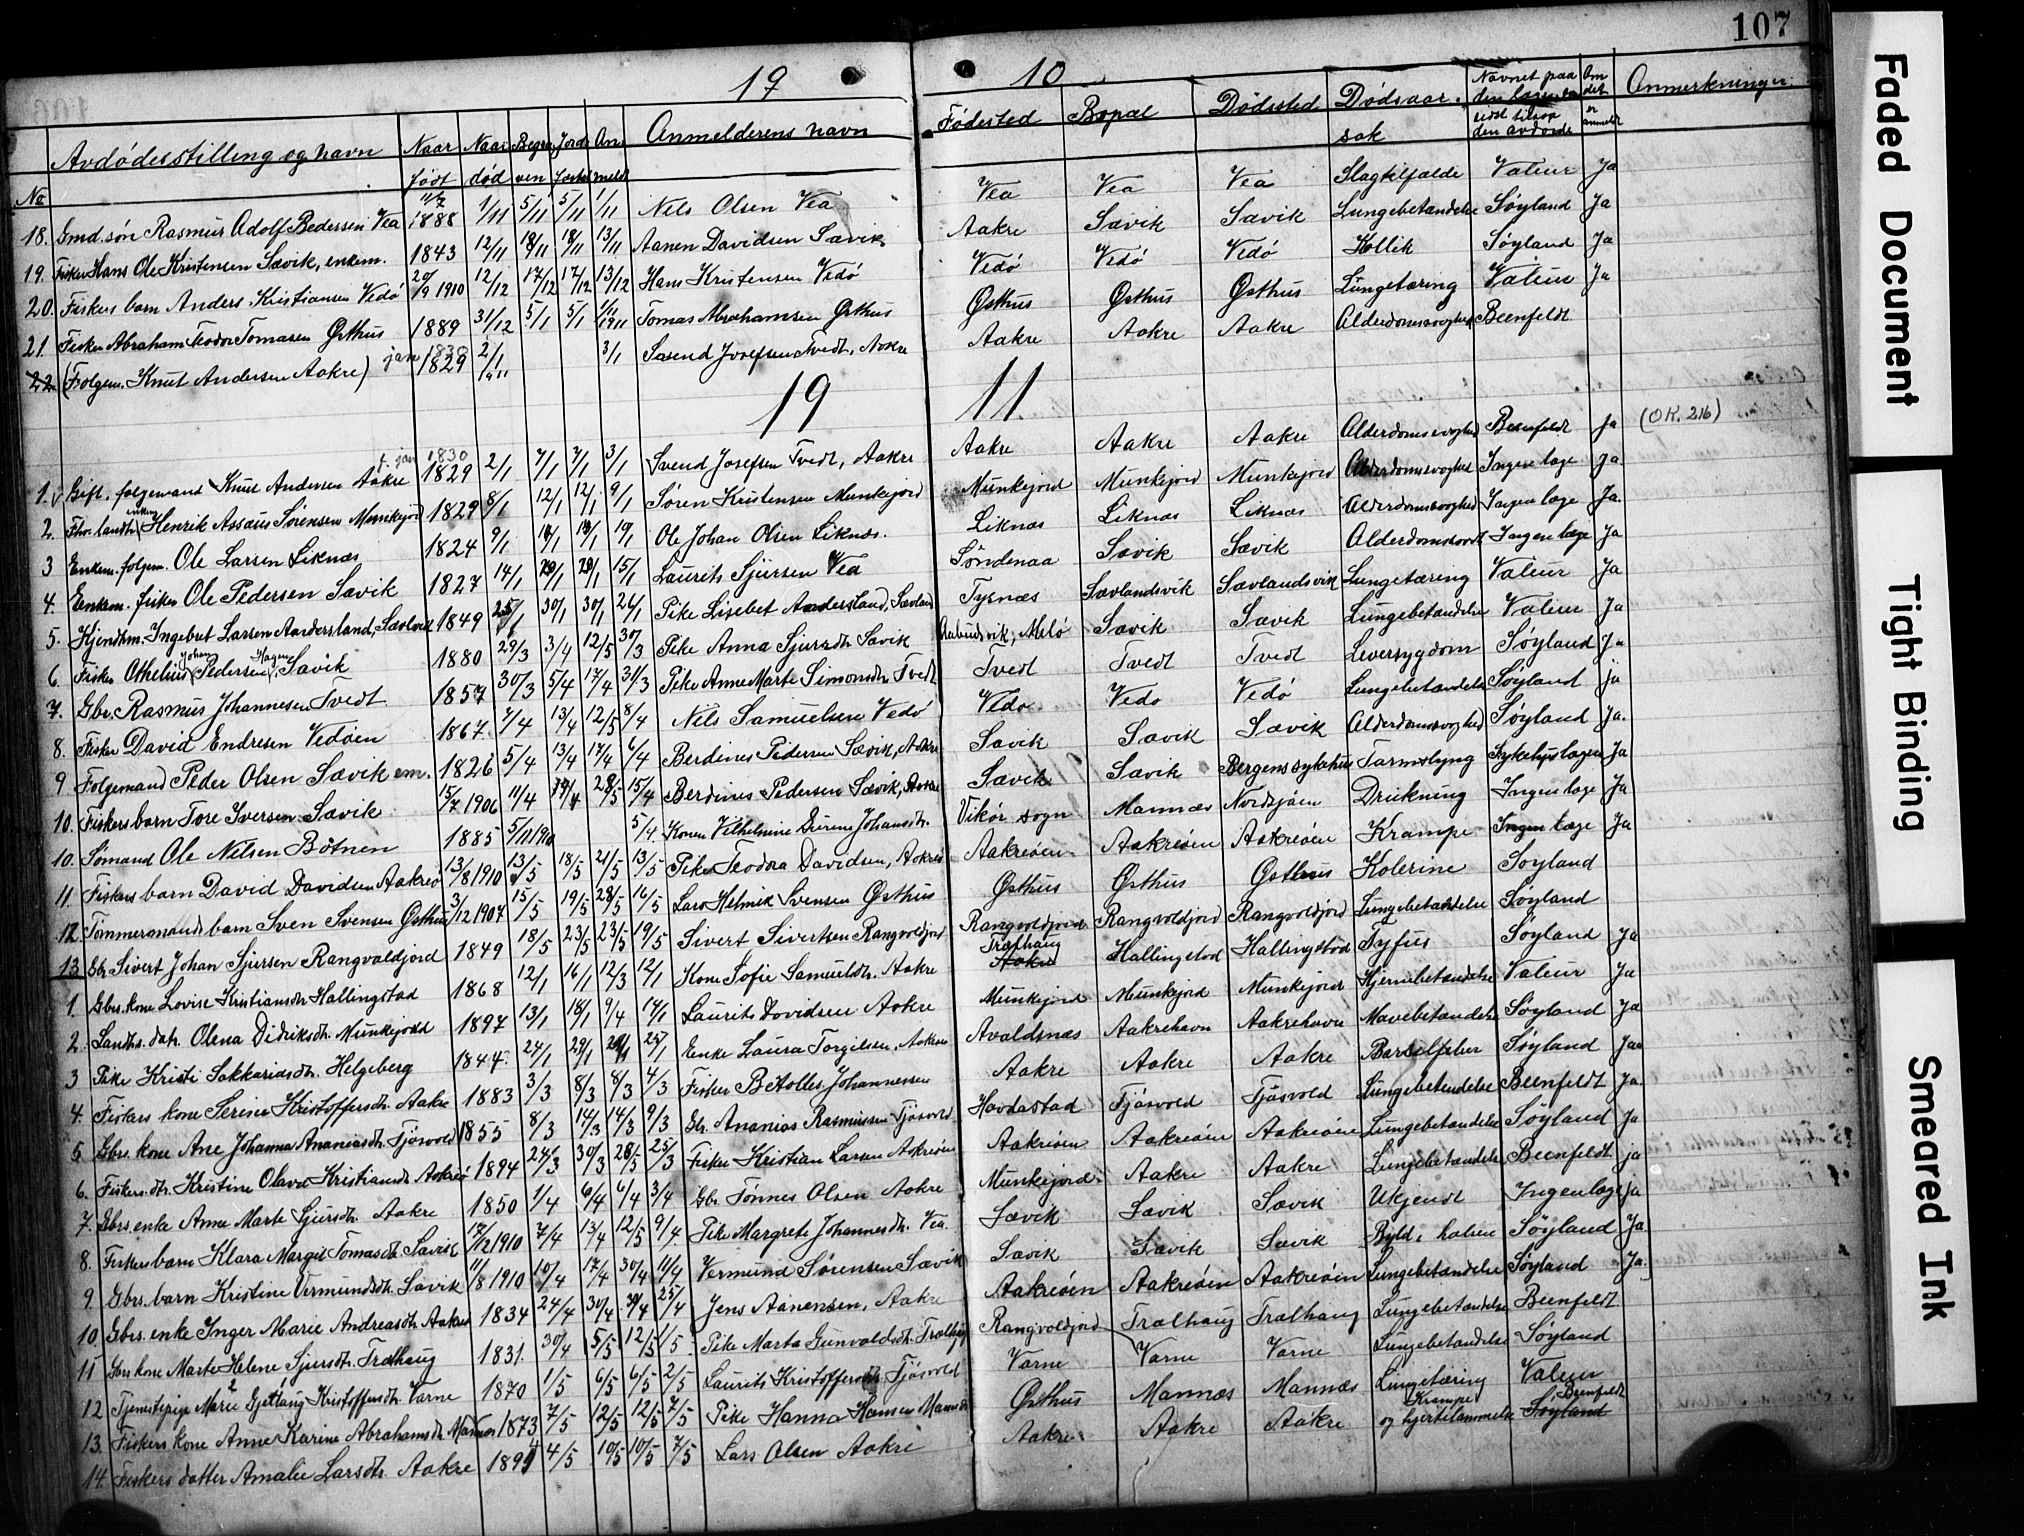 107
19 10
No Avdødes stilling og navn Naar født Naar død Begra ven Jords fæstet An meldt Anmelderens navn Fødested Bopæl Dødssted Dødsaar sak Navnet paa den læge som sidst tilsaa den avdøde Om det er anmeldt Anmerkninger.
18. Gmd. søn Rasmus Adolf Pedersen Vea 11/7 1888 1/11 5/11 5/11 1/11 Nils Olsen Vea Vea Vea Vea Slagtilfælde Valeur Ja
19. Fisker Hans Ole Kristensen Sævik, enkem. 1843 12/11 18/11 18/11 13/11 Aanen Davidsen Sævik Aakre Sævik Sævik Lungebetændelse Søyland Ja
20. Fiskers barn Anders Kristiansen Vedø 20/9 1910 12/12 17/12 17/12 13/12 Hans Kristensen Vedø Vedø Vedø Vedø Kollik Søyland Ja
21. Fisker Abraham Teodor Tomasen Østhus 1889 31/12 5/1 5/1 1/1 1911 Tomas Abrahamsen Østhus Østhus Østhus Østhus Lungetæring Valeur Ja
22 (Folgem. Knut Andersen Aakre) jan 1830 1829 2/1 1911 3/1 Svend Josefsen Tvedt, Aakre Aakre Aakre Aakre Alderdomssvaghed Beenfeldt
19 11
1. Gift. folgemand Knut Andersen Aakre f. jan 1830 1829 2/1 7/1 7/1 3/1 Svend Josefsen Tvedt, Aakre Aakre Aakre Aakre Alderdomssvaghed Beenfeldt Ja (OK. 216)
2. Fhv. landh. enkem Henrik Assaus Sørensen Munkejord 1829 8/1 12/1 12/1 9/1 Søren Kristensen Munkejord Munkejord Munkejord Munkejord Alderdomssvaghed Ingen læge Ja
3 Enkem. folgem. Ole Larsen Liknæs 1824 9/1 19/1 Ole Johan Olsen Liknæs. Liknæs Liknæs Liknæs Alderdomssvaghed Ingen læge Ja
4. Enkem. fisker Ole Pedersen Sævik 1827 14/1 20/1 20/1 15/1 Laurits Sjursen Vea Søndenaa Sævik Sævik Alderdomssvagh Ingen læge Ja
5. Hjendhm. Ingebret Larsen Aardersland, Sævland 1849 25/1 30/1 30/1 26/1 Pike Lisebet Aardersland, Sævland Tysnæs Sævlandsvik Sævlandsvik Lungetæring Valeur Ja
6. Fisker Othelius Johan Pedersen Hagen, Sævik 1880 29/3 3/4 12/5 30/3 Pike Anna Sjursdtr. Sævik Melø Sævik Sævik Lungebetændelse Valeur Ja
7. Gbr. Rasmus Johannesen Tvedt 1857 30/3 5/4 17/4 31/3 Pike Anne Marte Simonsdtr. Tvedt Tvedt Tvedt Tvedt Leversygdom Søyland Ja
8. Fisker David Endresen Vedøen 1867 7/4 13/4 12/5 8/4 Nels Samuelsen Vedø Vedø Vedø Vedø Lungebetændelse Søyland Ja
9 Folgemand Peder Olsen Sævik em. 1826 5/4 13/4 17/4 6/4 Berdines Pedersen Sævik, Aakre Sævik Sævik Sævik Alderdomssvaghed Søyland Ja.
10. Fiskers barn Tore Iversen Sævik 15/7 1906 11/4 19/4 28/5 15/4 Berdines Pedersen Sævik, Aakre Sævik Sævik Bergens sykehus Tarmslyng Sykehuslægen Ja
10. Sømand Ole Nilsen Bøtnen 1885 5/11 1910 5/4. Konen Vilhelmine Severine Johansdtr. Vikør sogn Mannæs Nordsjøen Drukning Ingen læge Ja
11. Fiskers barn David Davidsen Aakreø 13/8 1910 13/5 18/5 21/5 13/5 Pike Teodora Davidsen, Aakreø Aakreøen Aakreøen Aakreøen Krampe Ingen læge Ja
12. Tømmermands barn Sven Svensen Østhus 3/12 1907 15/5 19/5 28/5 16/5 Lars Helmik Svensen Østhus Østhus Østhus Østhus Kolerine Søyland
13 Gbr Sivert Johan Sjursen Rangvaldjord 1849 18/5 23/5 23/5 19/5 Sivert Sivertsen Rangvoldjord Rangvoldjord Rangvoldjord Rangvoldjord Lungebetændelse Søyland
1. Gbrs. kone Lovise Kristiansdtr. Hallingstad 1868 12/1 16/1 12/3 12/1 Kone Sofie Samuelsdtr. Aakre Trælhaug Aakre Hallingstad Hallingstad Tyfus Søyland Ja
2. Landhs. datr. Olena Didriksdtr. Munkejord 1897 13/1 18/1 9/4 14/1 Laurits Davidsen Aakre Munkejord Munkejord Munkejord Hjernebetændelse Valeur Ja
3 Pike Kristi Sakkariasdtr. Helgeberg 1844. 24/1 29/1 25/1 Enke Laura Torgilsen, Aakreø Avaldsnæs Aakrehavn Aakrehavn Mavebetændelse Søyland Ja
4. Fiskers kone Serine Kristoffersdtr. Aakre 1883 3/3 8/3 8/3 4/3 Fisker B Holles Johannesen Aakre Aakre Aakre Barselfeber Søyland Ja
5 Gbrs. kone Ane Johanna Ananiasdtr. Tjøsvold 1855 8/3 14/3 14/3 9/3 Gbr. Ananias Rasmussen Tjøsvold Hovdastad Tjøsvold Tjøsvold Lungebetændelse Beenfeldt Ja
6. Fiskers. dtr. Kristine Olava Kristiansdr Aakreø 1894 24/3 30/3 28/5 25/3 Fisker Kristian Larsen Aakreøen Aakreøen Aakreøen Aakreøen Lungebetændelse Søyland Ja
7. Gbrs. enke Anne Marte Sjursdtr. Aakre 1850 1/4 6/4 6/4 3/4 Gbr. Tønnes Olsen Aakre Munkejord Aakre Aakre Lungebetændelse Beenfeldt ja
8. Fiskers barn Klara Margit Tomasdtr. Sævik 18/12 1910 7/4 13/4 12/5 9/4 Pike Margrete Johannesdtr. Vea Sævik Sævik Sævik Ukjendt Ingen læge ja
9. Gbrs. barn Kristine Vermundsdtr. Sævik 11/8 1910 10/4 17/4 30/4 11/4 Vermund Sørensen Sævik Sævik Sævik Sævik Byld i halsen Søyland Ja
10. Gbrs. enke Inger Marie Andreasdtr. Aakreø 1834 24/4 30/4 30/4 25/4 Jens Aanensen, Aakre Aakreøen Aakreøen Aakreøen Lungebetændelse Søyland Ja.
11 Gbrs kone Marte Helene Sjursdtr. Trælhaug 1831. 30/4 5/5 12/5 1/5 Pike Marta Gunvaldsdtr. Trælhaug Rangvoldjord Trælhaug Trælhaug Lungebetændelse Beenfeldt
12 Tjenestepige Marie Gjetlaug Kristoffersdtr. Varne 1870 1/5 6/5 6/5 2/5 Laurits Kristoffersen Tjøsvold Varne Varne Varne Lungebetændelse Søyland
13. Fiskers kone Anne Karine Abrahamsdtr. Mannæs 1873 7/5 12/5 12/5 7/5 Pike Hanna Hansen Mannæs Østhus Mannæs Mannæs Lungetæring Valeur
14. Fiskers datter Amalie Larsdtr. Aakre 1894 4/5 10/5 10/5 7/5 Lars Olsen Aakre Aakre Aakre Aakre Krampe og hjertelammelse Beenfeldt Søyland
Faded Document
Tight Binding
Smeared Ink